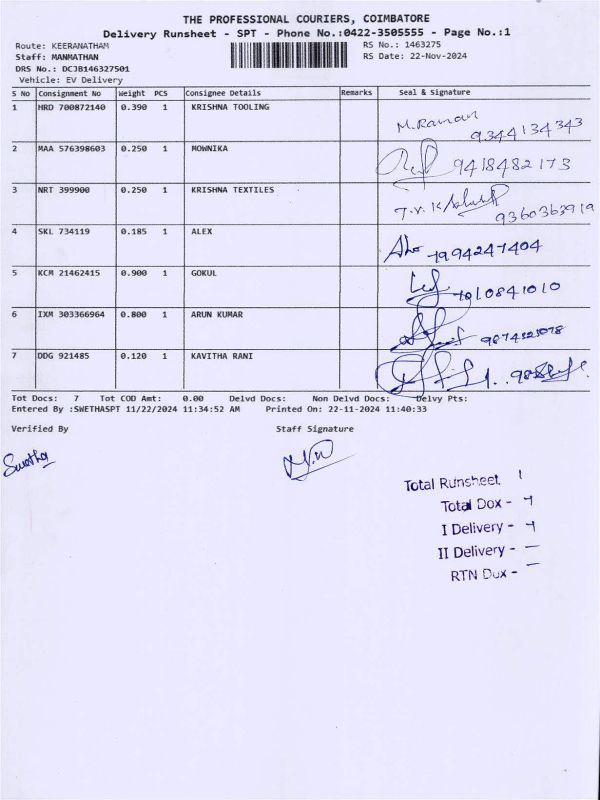 THE PROFESSIONAL COURIERS, COIMBATORE
Delivery Runsheet - SPT - Phone No.:0422-3505555 - Page No.:1
Route: KEERANATHAM
RS No.: 1463275
Staff: MANMATHAN
RS Date: 22-Nov-2024
DRS No.: DCJB146327501
Vehicle: EV Delivery
S No Consignment No Weight PCS Consignee Details Remarks Seal & Signature
1 HRD 700872140 0.390 1 KRISHNA TOOLING M. Raman 9344134343
2 MAA 576398603 0.250 1 MOWNIKA 9418482173
3 NRT 399900 0.250 1 KRISHNA TEXTILES 9360363919
4 SKL 734119 0.185 1 ALEX
5 KCM 21462415 0.900 1 GOKUL
6 IXM 303366964 0.800 1 ARUN KUMAR
7 DDG 921485 0.120 1 KAVITHA RANI
Tot Docs: 7 Tot COD Amt: 0.00 Delvd Docs: Non Delvd Docs: Delvy Pts:
Entered By :SWETHASPT 11/22/2024 11:34:52 AM Printed On: 22-11-2024 11:40:33
Verified By Staff Signature
Swetha
Total Runsheet 1
Total Dox - 7
I Delivery - 7
II Delivery - –
RTN Dox - –